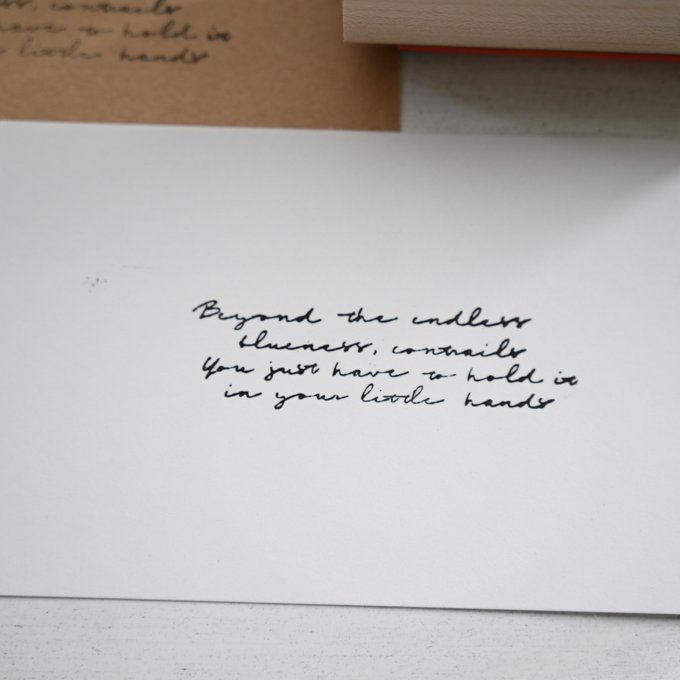 ss, contrails
have to hold it
little hands
Beyond the endless
blueness, contrails
You just have to hold it
in your little hands